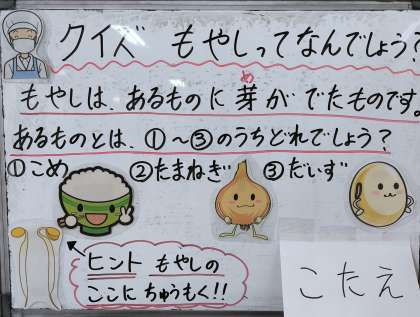 クイズ もやしってなんでしょう?
もやしは、あるものに芽がでたものです。
め
あるものとは、①～③のうちどれでしょう?
①こめ ②たまねぎ ③だいず
ヒント もやしの
ここにちゅうもく!!
こたえ